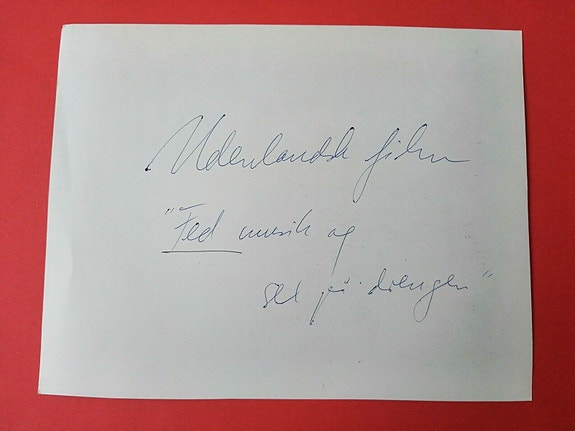 Udenlandsk film
"Fed musik og
gul på drengen"